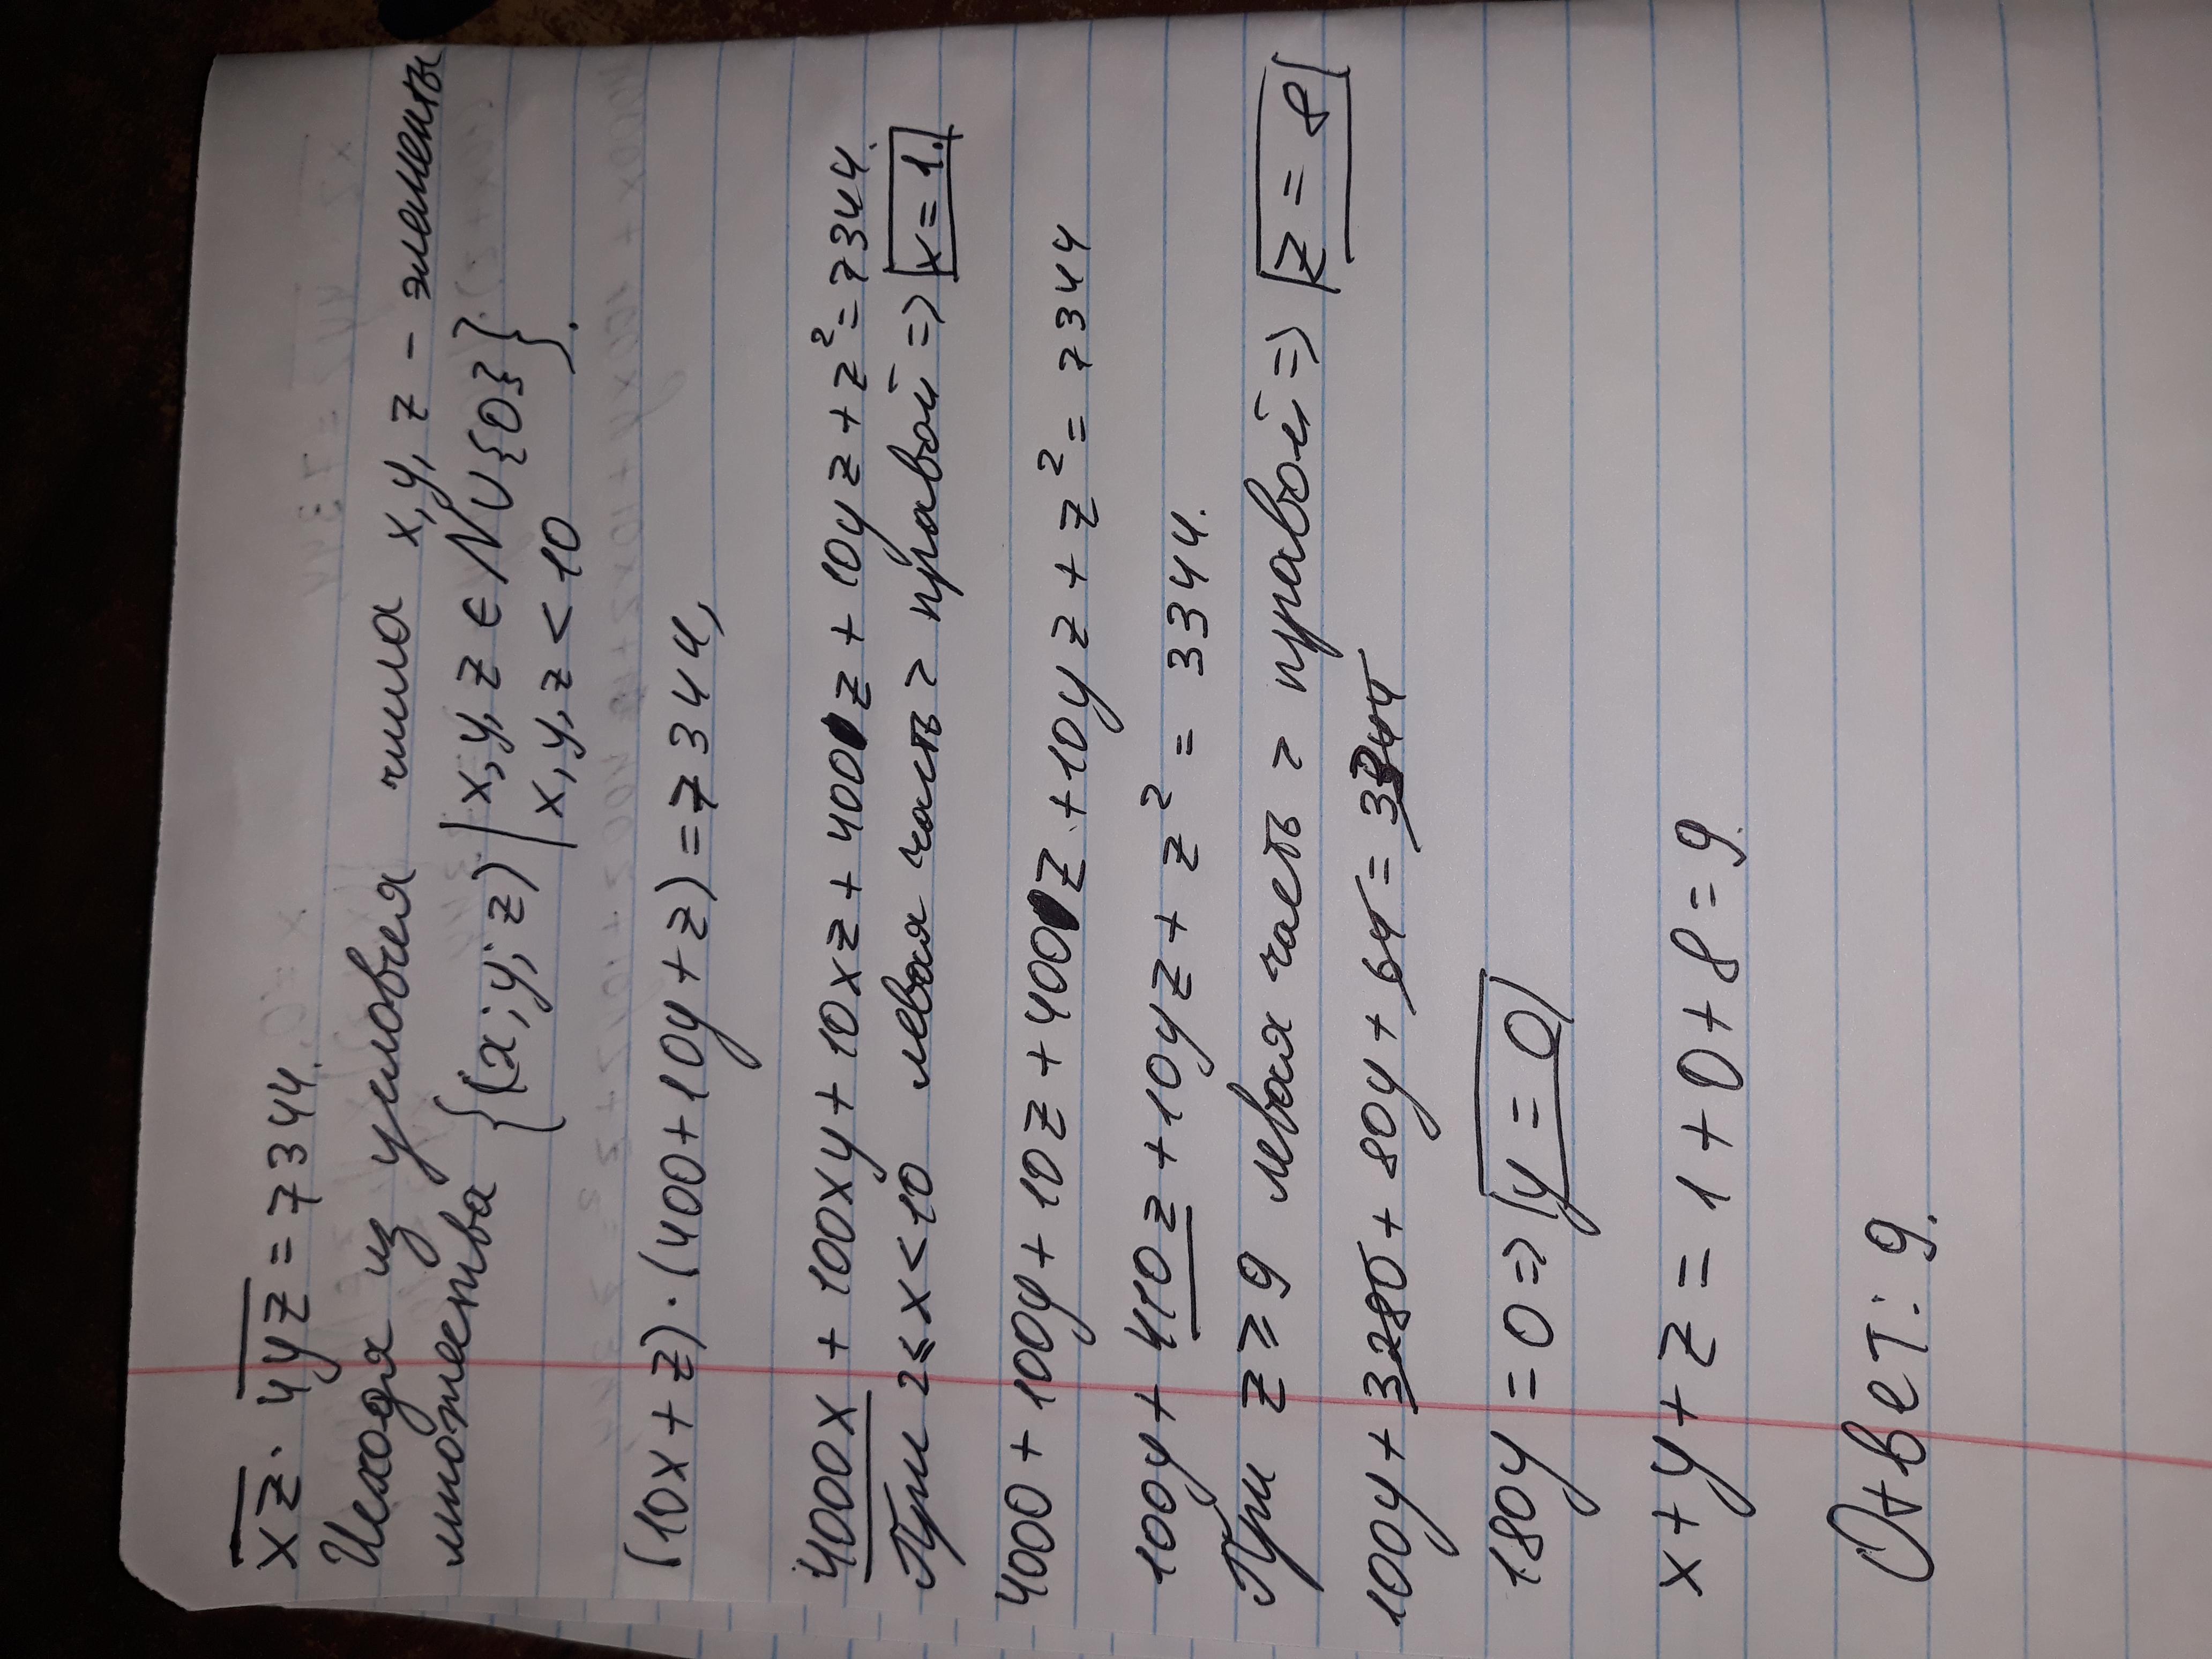 xz · 4yz = 7344.
Исходя из условия числа x, y, z - элементы
множества {(x; y; z) | x, y, z ∈ N∪{0}
x, y, z < 10}.
(10x + z) · (400 + 10y + z) = 7344,
4000x + 100xy + 10xz + 400z + 10yz + z² = 7344.
При 2 ≤ x < 10 левая часть > правой => x = 1.
4000 + 100y + 10z + 400z + 10yz + z² = 7344
100y + 410z + 10yz + z² = 3344.
При z ≥ 9 левая часть > правой => z = 8
100y + 3280 + 80y + 64 = 3344
180y = 0 => y = 0
x + y + z = 1 + 0 + 8 = 9.
Ответ: 9.